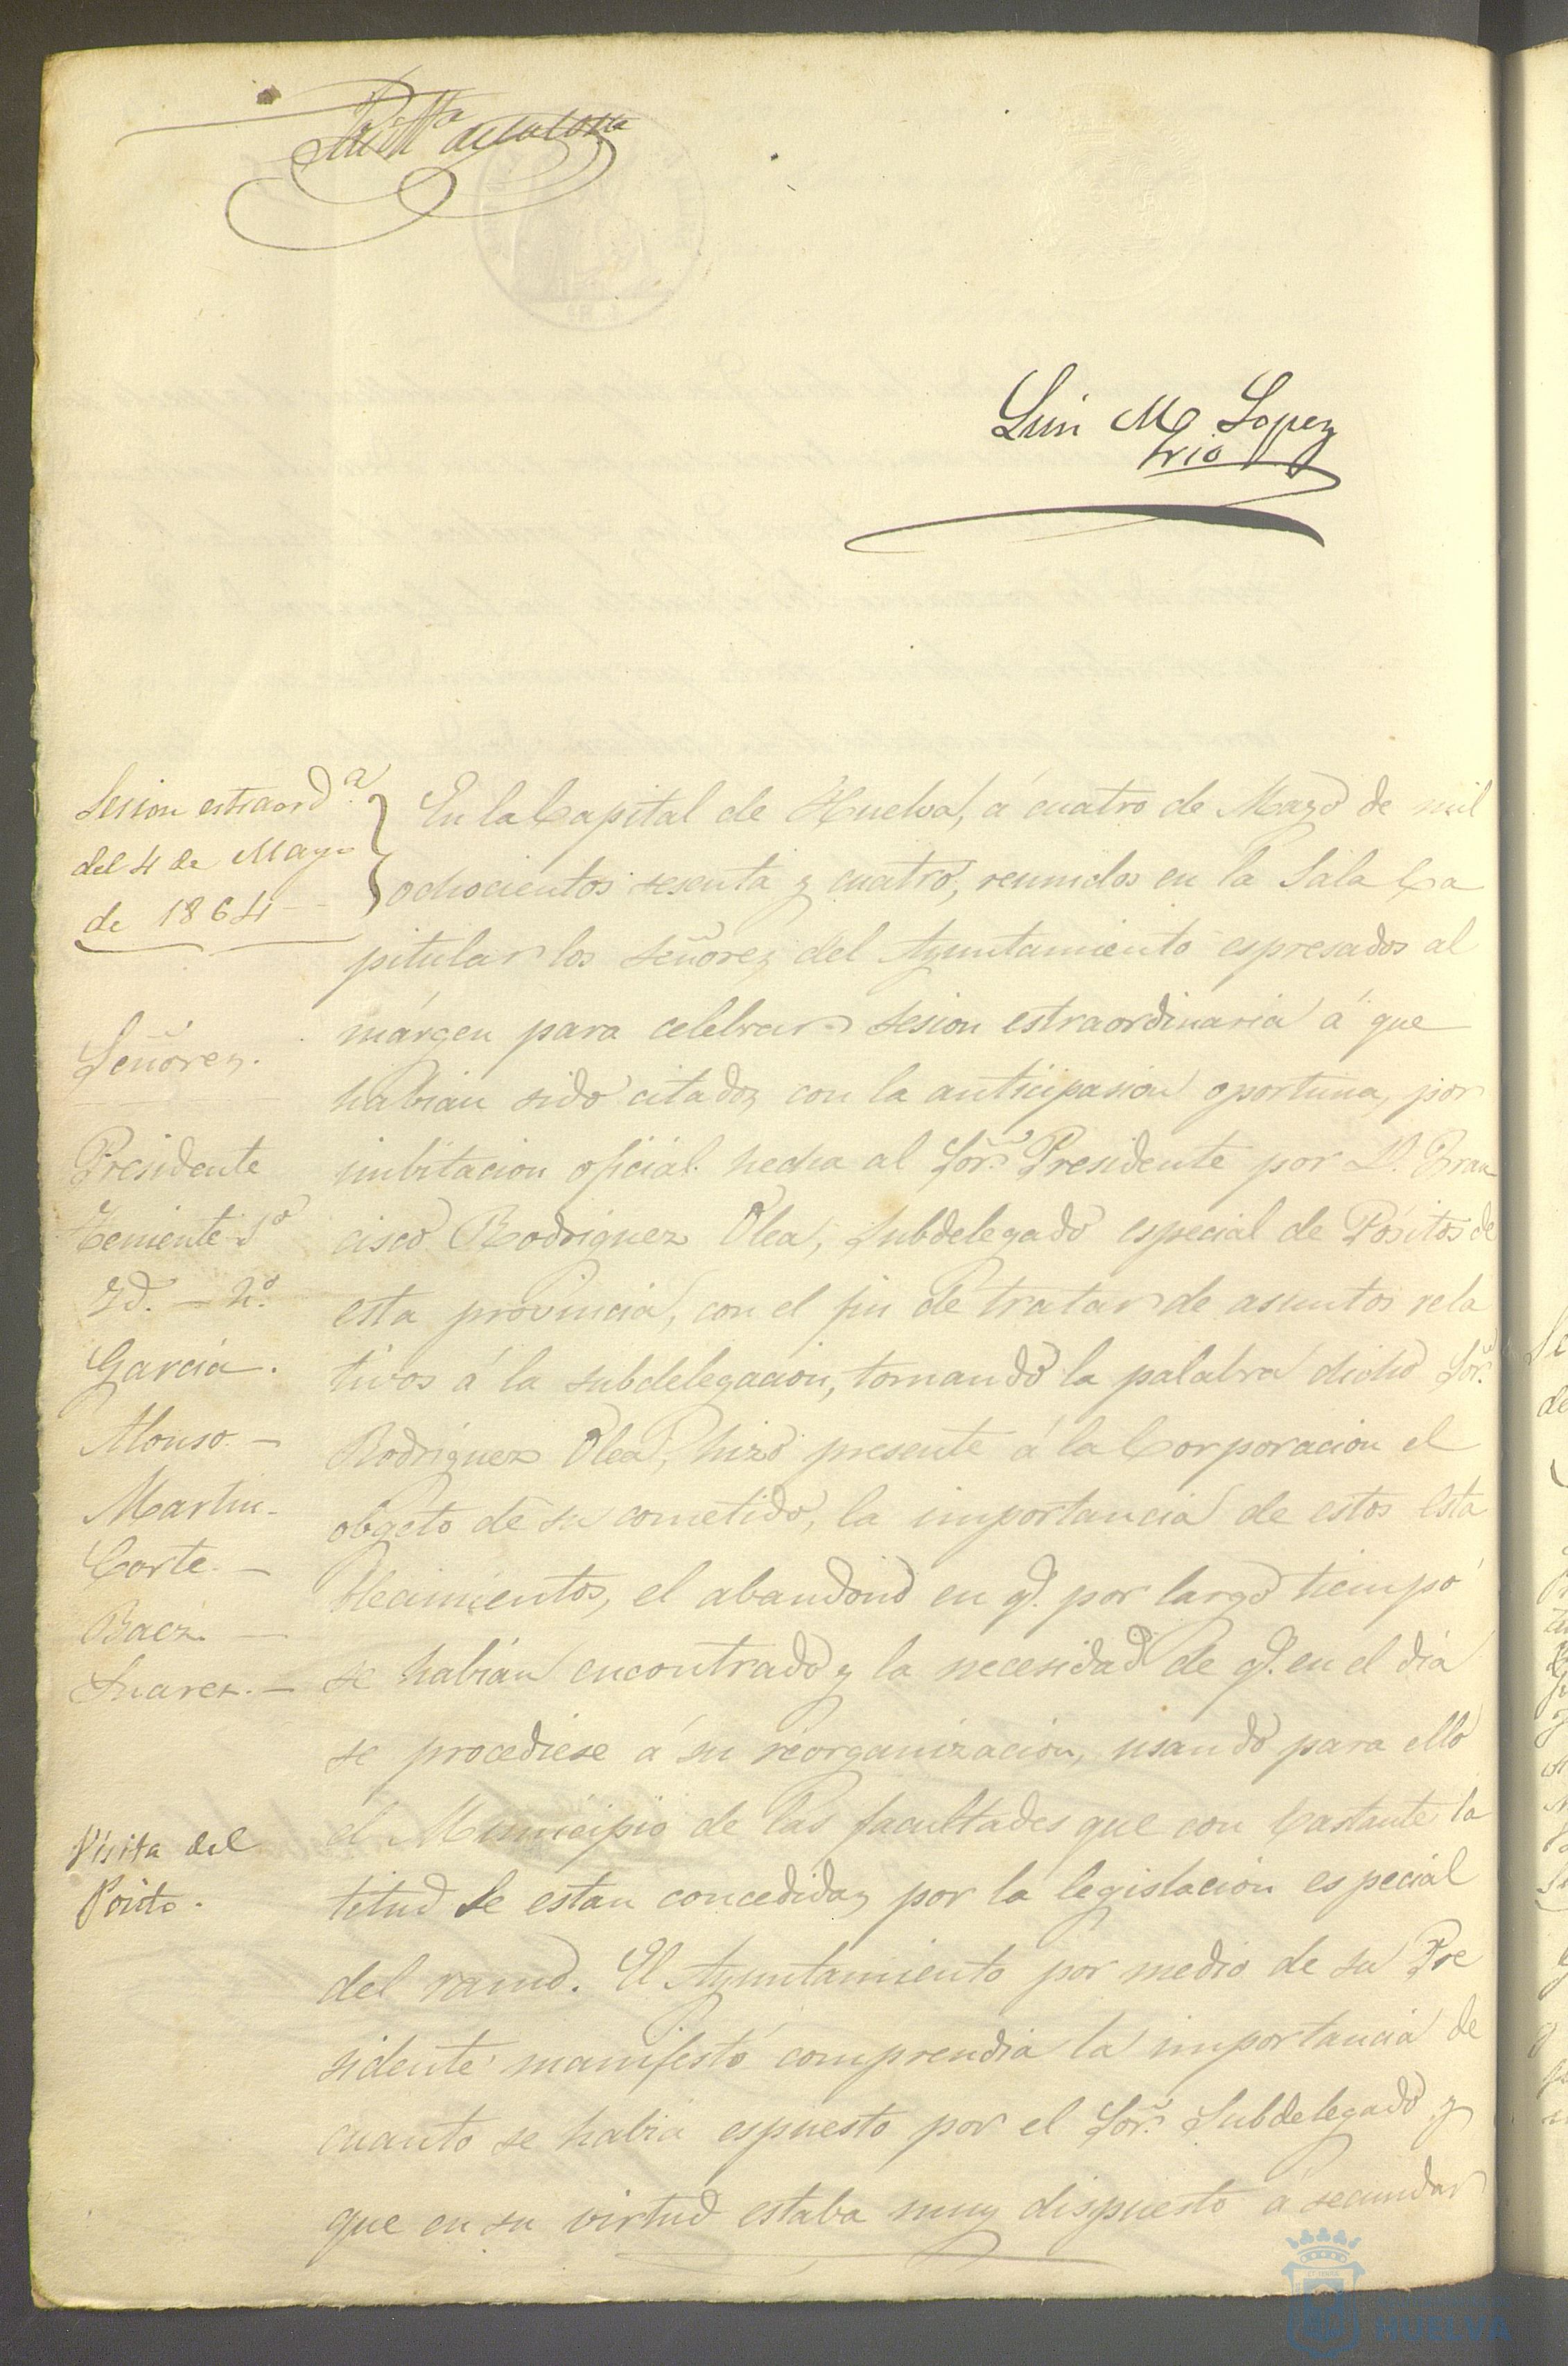 Luis M Lopez
Srio
Sesion estraord.ª
del 4 de Mayo
de 1864
Señores.
Presidente
Teniente 1º
Yd. — 2º.
Garcia.
Alonso. —
Martin. -
Corte. —
Baez. —
Suarez. —
Visita del
Posito.
En la Capital de Huelva, á cuatro de Mayo de mil
ochocientos sesenta y cuatro, reunidos en la Sala Ca
pitular los señores del Ayuntamiento espresados al
márgen para celebrar sesion estraordinaria á que
habian sido citados con la anticipasion oportuna, por
imbitacion oficial hecha al Sor. Presidente por D. Fran
cisco Rodriguez Olea, Subdelegado especial de Pósitos de
esta provincia, con el fin de tratar de asuntos rela
tivos á la subdelegacion, tomando la palabra dicho Sor.
Rodriguez Olea, hizo presente á la Corporacion el
obgeto de su cometido, la importancia de estos esta
blecimientos, el abandono en q. por largo tiempo
se habian encontrado y la necesidad de q. en el dia
se procediese á su reorganizacion, usando para ello
el Municipio de las facultades que con bastante la
titud le estan concedidas por la legislacion especial
del ramo. El Ayuntamiento por medio de su Pre
sidente manifestó comprendia la importancia de
cuanto se habia espuesto por el Sor. Subdelegado y
que en su virtud estaba muy dispuesto á secundar
HUELVA